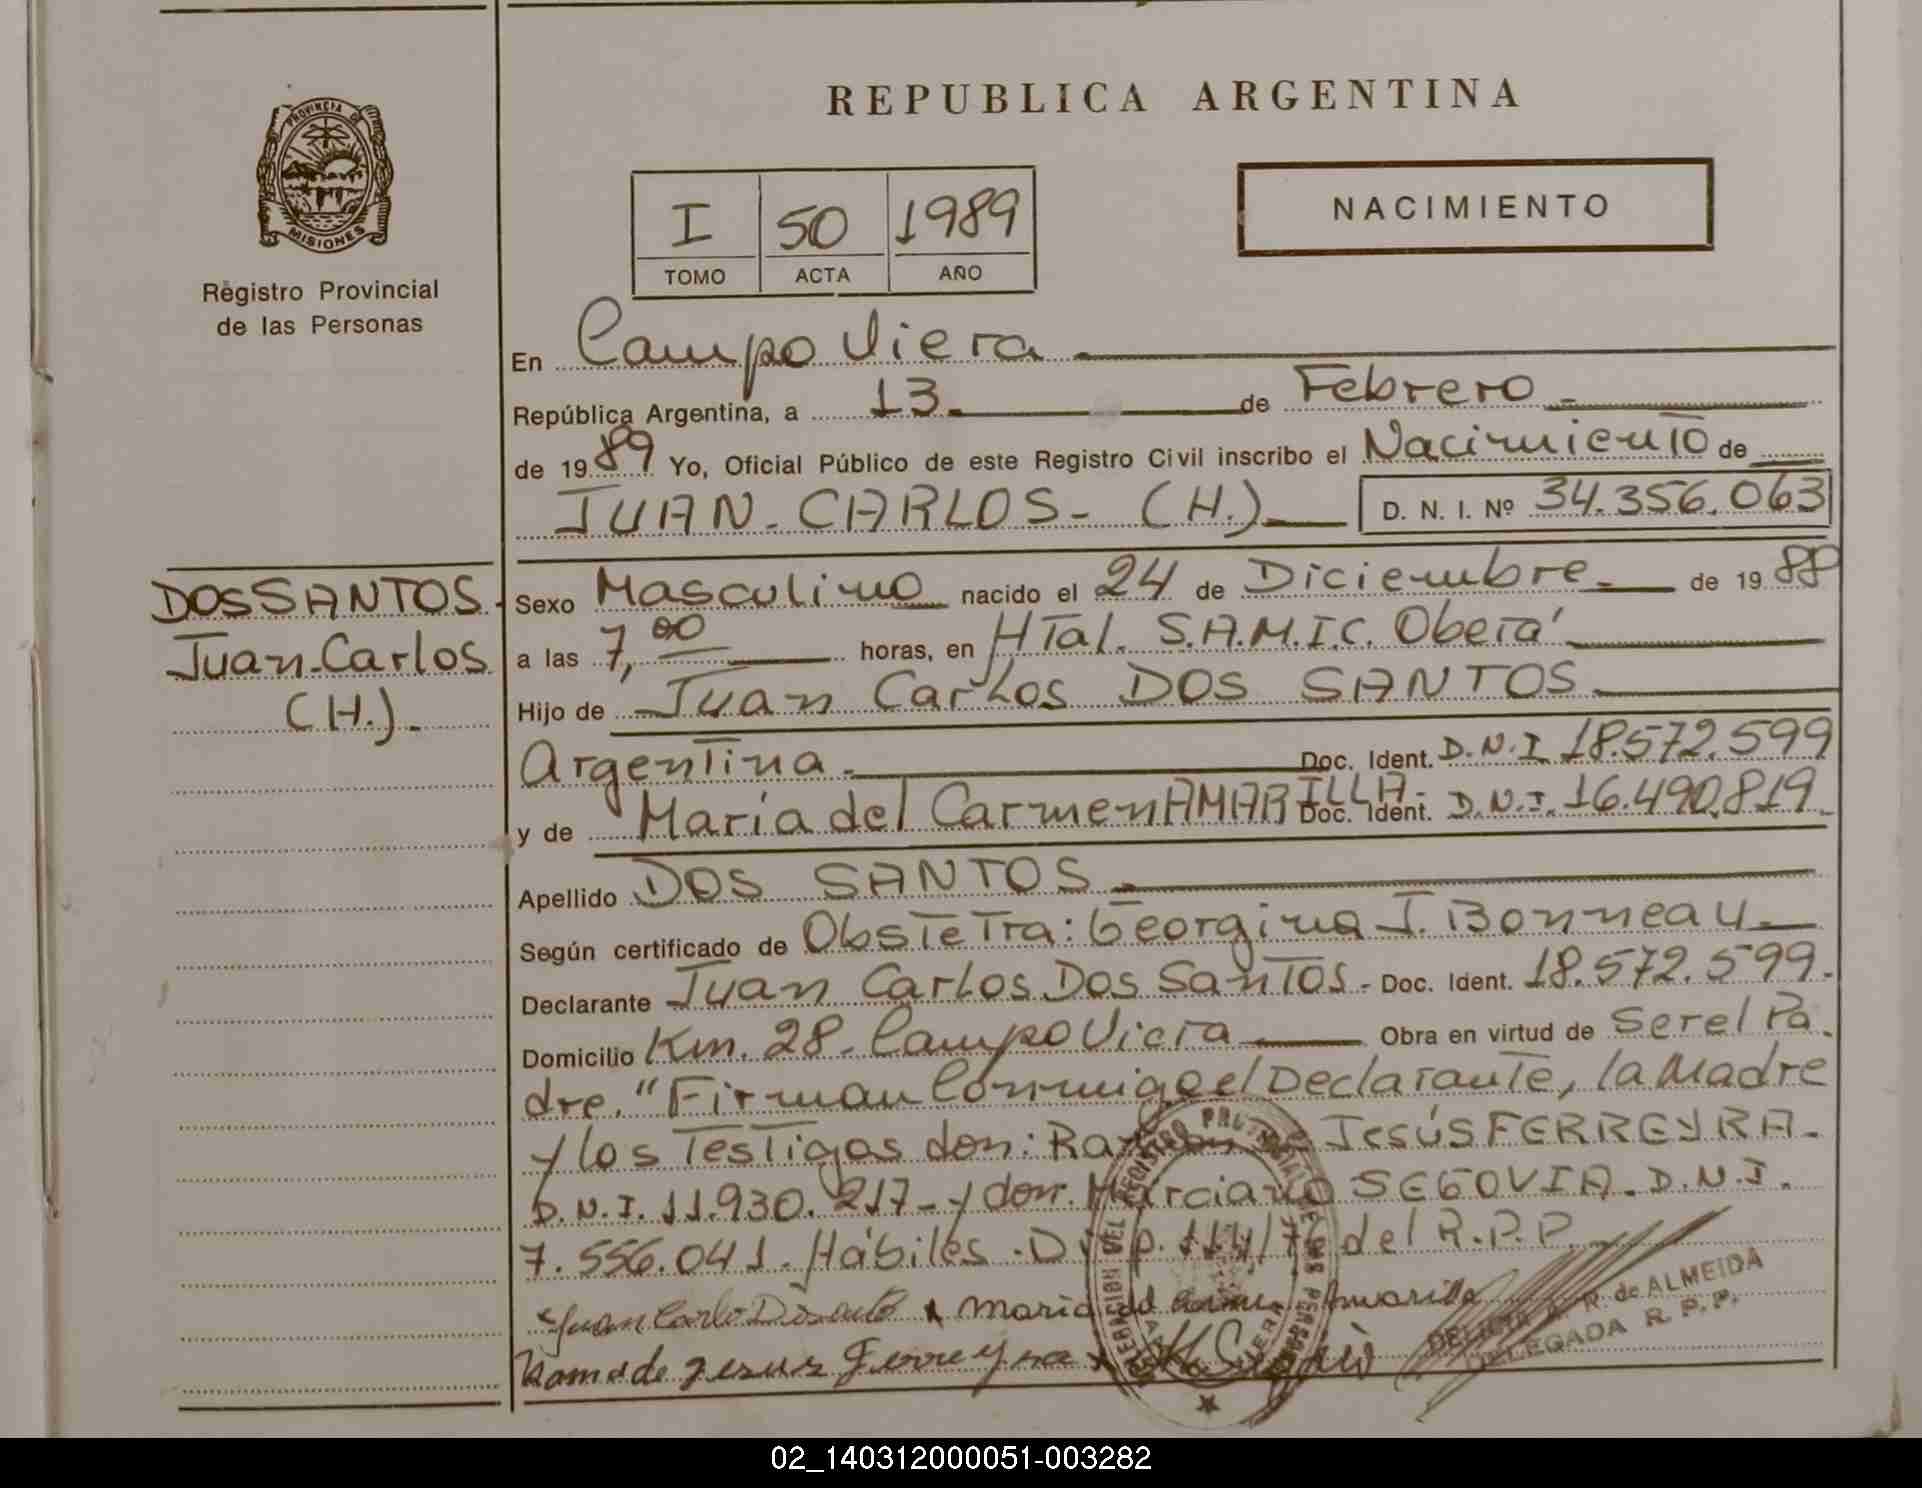 REPUBLICA ARGENTINA
PROVINCIA DE
MISIONES
Registro Provincial
de las Personas
I 50 1989
TOMO ACTA AÑO
NACIMIENTO
En Campo Viera
República Argentina, a 13 de Febrero
de 1989 Yo, Oficial Público de este Registro Civil inscribo el Nacimiento de
JUAN CARLOS - (H.) D. N. I. Nº 34.356.063
DOS SANTOS
Juan Carlos
(H.)
Sexo Masculino nacido el 24 de Diciembre de 1988
a las 7,00 horas, en HTal. S.A.M.I.C. Oberá
Hijo de Juan Carlos DOS SANTOS
Argentina Doc. Ident. D.N.I 18.572.599
y de María del Carmen AMARILLA Doc. Ident. D.N.I. 16.490.819
Apellido DOS SANTOS
Según certificado de Obstetra: Georgina J. Bonneau
Declarante Juan Carlos Dos Santos - Doc. Ident. 18.572.599
Domicilio Km. 28. Campo Viera Obra en virtud de Ser el Pa
dre. "Firman Conmigo el Declarante, la Madre
y los Testigos don: Ramon de Jesús FERREYRA -
D.N.I. 11.930.217 - y don: Marciano SEGOVIA. D.N.I.
7.556.041. Hábiles. Disp. 114/7 del R.P.P.
Juan Carlo Dosanto x Maria del Carmen Amarilla
Ramon de Jesus Ferreyra x
DELICIA A. R. de ALMEIDA
DELEGADA R. P. P.
02_140312000051-003282